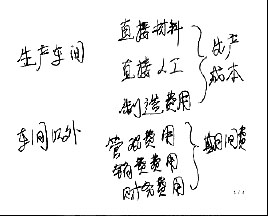 直接材料
生产车间 直接人工 生产成本
制造费用
车间以外 管理费用 期间费
销售费用
财务费用